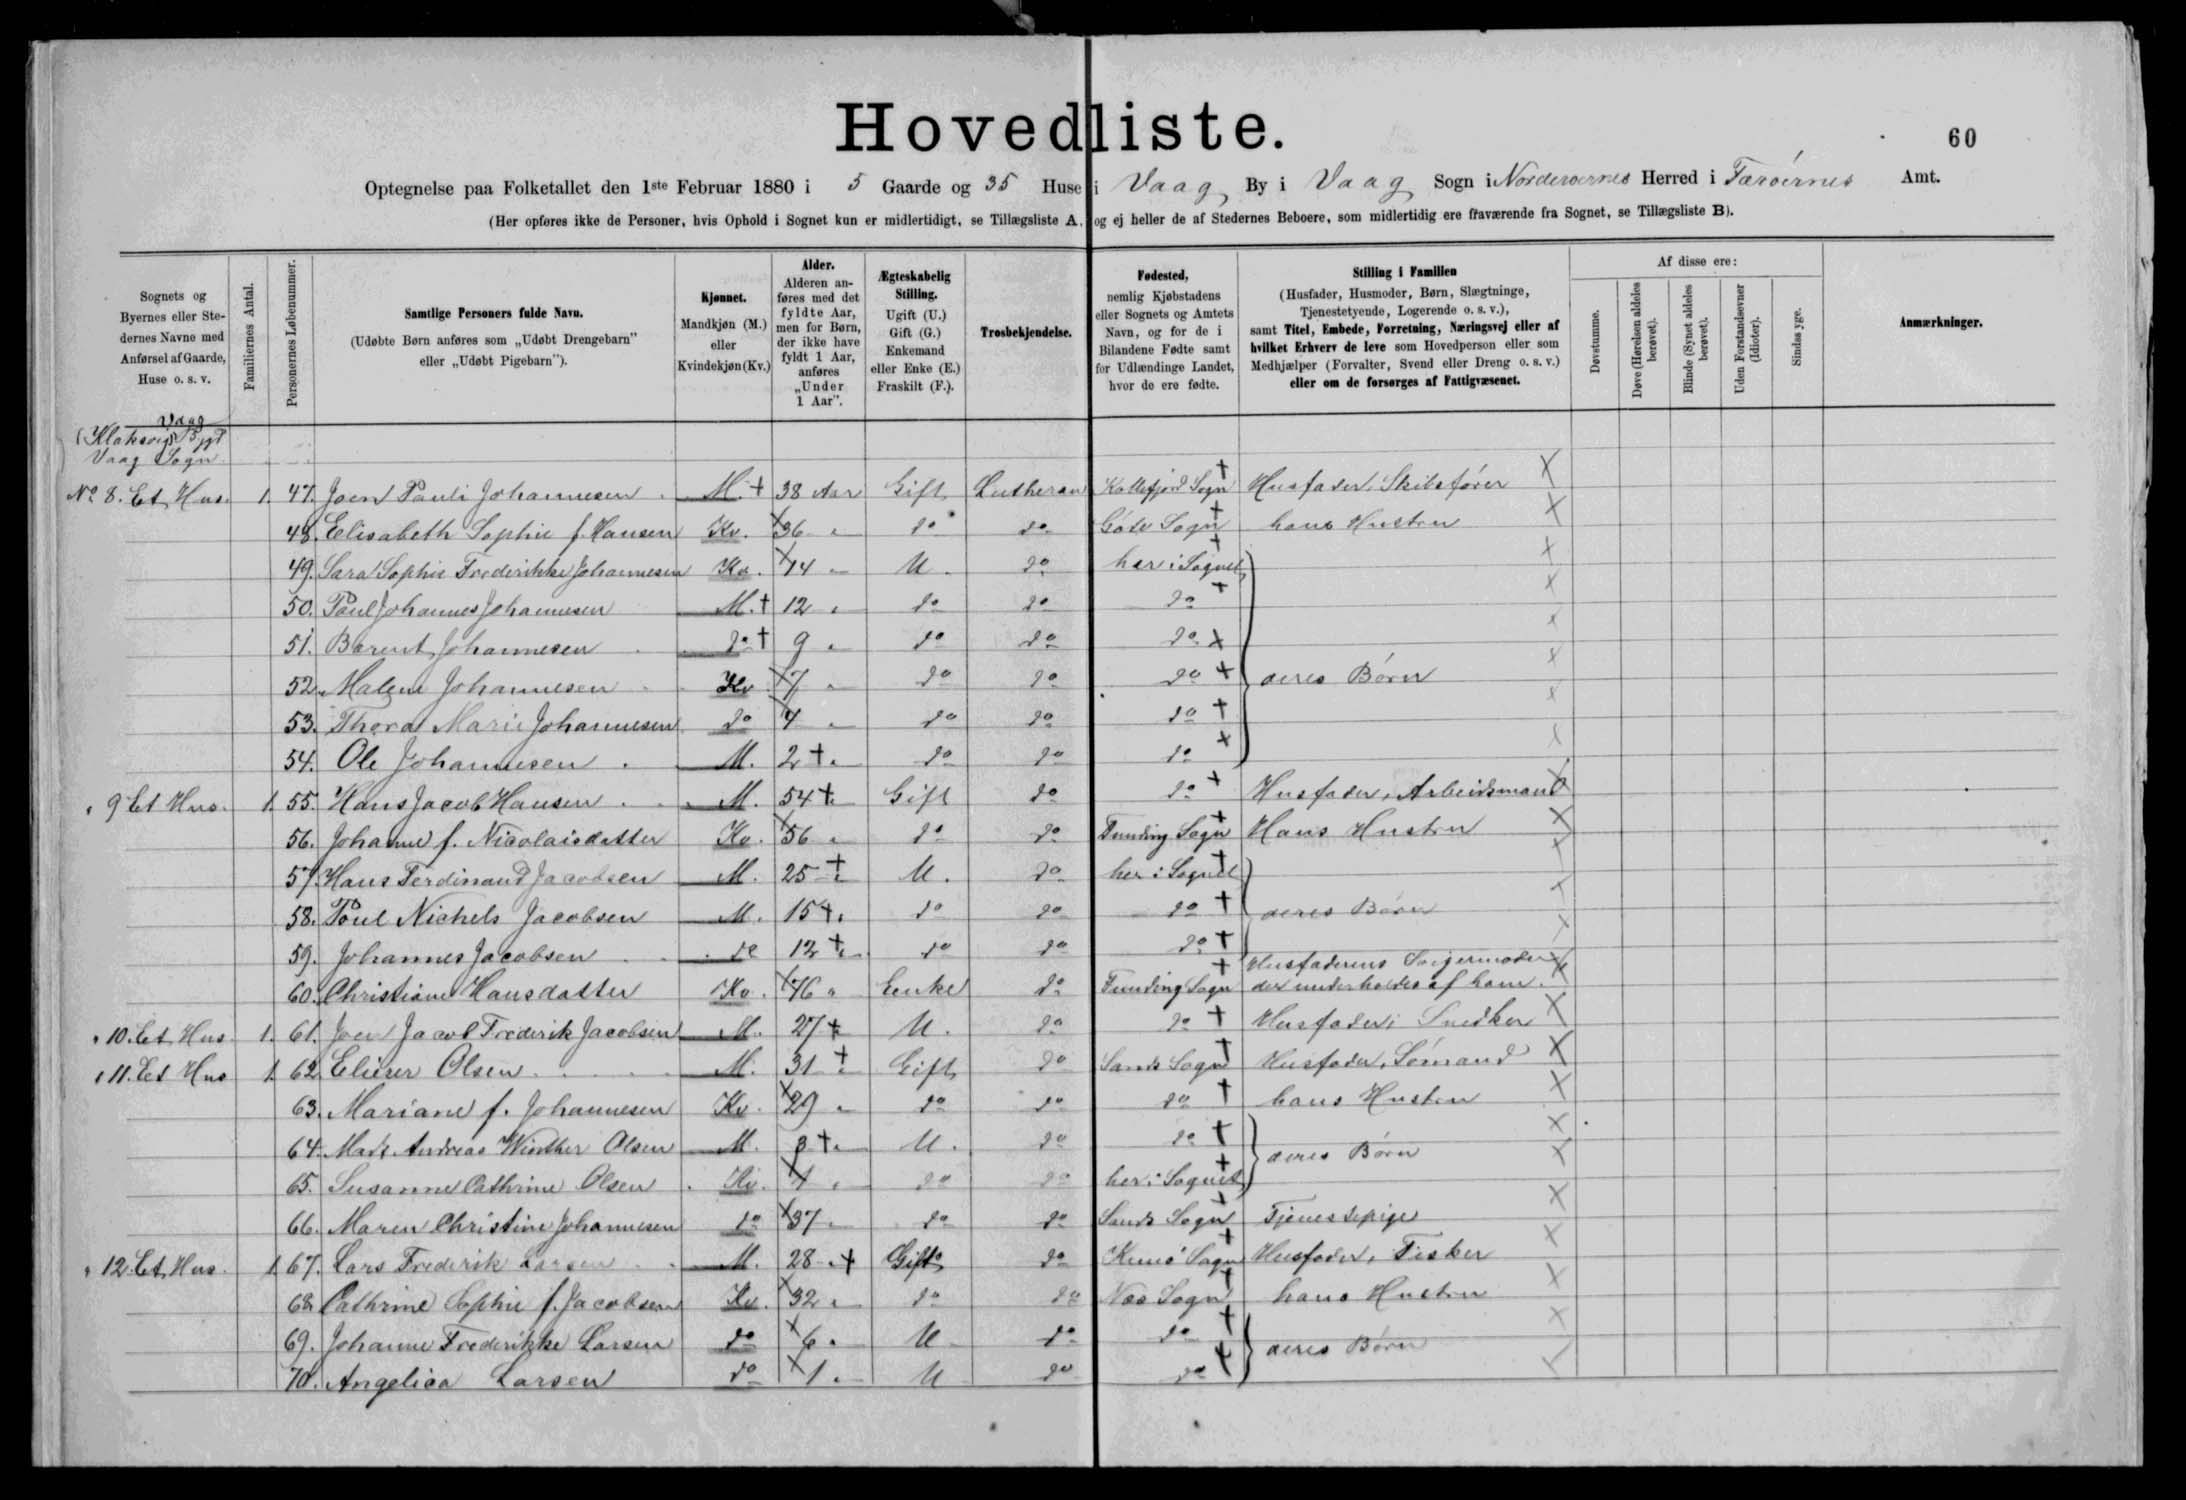 Hovedliste.
60
Optegnelse paa Folketallet den 1ste Februar 1880 i 5 Gaarde og 35 Huse i Vaag By i Vaag Sogn i Norderoernes Herred i Færóernes Amt.
(Her opføres ikke de Personer, hvis Ophold i Sognet kun er midlertidigt, se Tillægsliste A, og ej heller de af Stedernes Beboere, som midlertidig ere fraværende fra Sognet, se Tillægsliste B).
Sognets og Byernes eller Stedernes Navne med Anførsel af Gaarde, Huse o. s. v.
Familiernes Antal.
Personernes Løbenummer.
Samtlige Personers fulde Navn.
(Udøbte Børn anføres som „Udøbt Drengebarn" eller „Udøbt Pigebarn").
Kjønnet.
Mandkjøn (M.) eller Kvindekjøn (Kv.)
Alder.
Alderen anføres med det fyldte Aar, men for Børn, der ikke have fyldt 1 Aar, anføres „Under 1 Aar".
Ægteskabelig Stilling.
Ugift (U.) Gift (G.) Enkemand eller Enke (E.) Fraskilt (F.).
Trosbekjendelse.
Fødested,
nemlig Kjøbstadens eller Sognets og Amtets Navn, og for de i Bilandene Fødte samt for Udlændinge Landet, hvor de ere fødte.
Stilling i Familien
(Husfader, Husmoder, Børn, Slægtninge, Tjenestetyende, Logerende o. s. v.), samt Titel, Embede, Forretning, Næringsvej eller af hvilket Erhverv de leve som Hovedperson eller som Medhjælper (Forvalter, Svend eller Dreng o. s. v.) eller om de forsørges af Fattigvæsenet.
Af disse ere:
Døvstumme.
Døve (Hørelsen aldeles berøvet).
Blinde (Synet aldeles berøvet).
Uden Forstandsevner (Idioter).
Sindssyge.
Anmærkninger.
Vaag
(Klaksvig) Bygd
Vaag Sogn
No 8. Et Hus. 1. 47. Joen Pauli Johannesen M. 38 Aar Gift Lutheran Kollefjord Sogn Husfader, Skibsfører
48. Elisabeth Sophie f. Hansen Kv. 36 " do do Göte Sogn hans Hustru
49. Sara Sophie Frederikke Johannesen Kv. 14 " U. do her i Sognet
50. Poul Johannes Johannesen M. 12 " do do do
51. Barent Johannesen do 9 " do do do
52. Malene Johannesen Kv 7 " do do do deres Børn
53. Thora Marie Johannesen do 4 " do do do
54. Ole Johannesen M. 2 " do do do
" 9 Et Hus. 1. 55. Hans Jacob Hansen M. 54 " Gift do do Husfader, Arbeidsmand
56. Johanne f. Nicolaisdatter Kv. 56 " do do Funding Sogn Hans Hustru
57. Hans Ferdinand Jacobsen M. 25 " U. do her i Sognet
58. Poul Nichels Jacobsen M. 15 " do do do deres Børn
59. Johannes Jacobsen do 12 " do do do
60. Christiane Hansdatter Kv. 76 " Eenke do Funding Sogn Husfaderens Svigermoder der underholdes af ham.
" 10. Et Hus 1. 61. Joen Jacob Frederik Jacobsen M. 27 " U. do do Husfader, Snedker
" 11. Et Hus 1. 62. Elieser Olsen M. 31 " Gift do Sands Sogn Husfader, Sömand
63. Mariane f. Johannesen Kv. 29 " do do do hans Hustru
64. Mads Andreas Winther Olsen M. 3 " U. do do deres Børn
65. Susanne Cathrine Olsen Kv. 1 " do do her i Sognet
66. Maren Christine Johannesen do 37 " do do Sands Sogn Tjenestepige
" 12. Et Hus. 1. 67. Lars Frederik Larsen M. 28 " Gift do Kunö Sogn Husfader, Fisker
68. Cathrine Sophie f. Jacobsen Kv. 32 " do do Næs Sogn hans Hustru
69. Johanne Frederikke Larsen do 6 " U do do deres Børn
70. Angelica Larsen do 1 " U do do